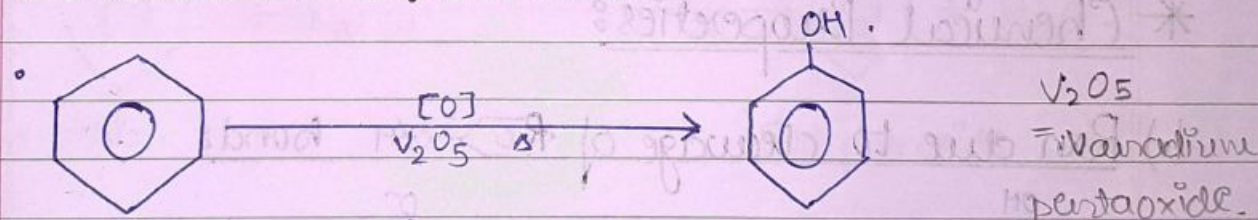 OH .
[O]
V2O5 Δ
V2O5
= Vanadium
pentaoxide.